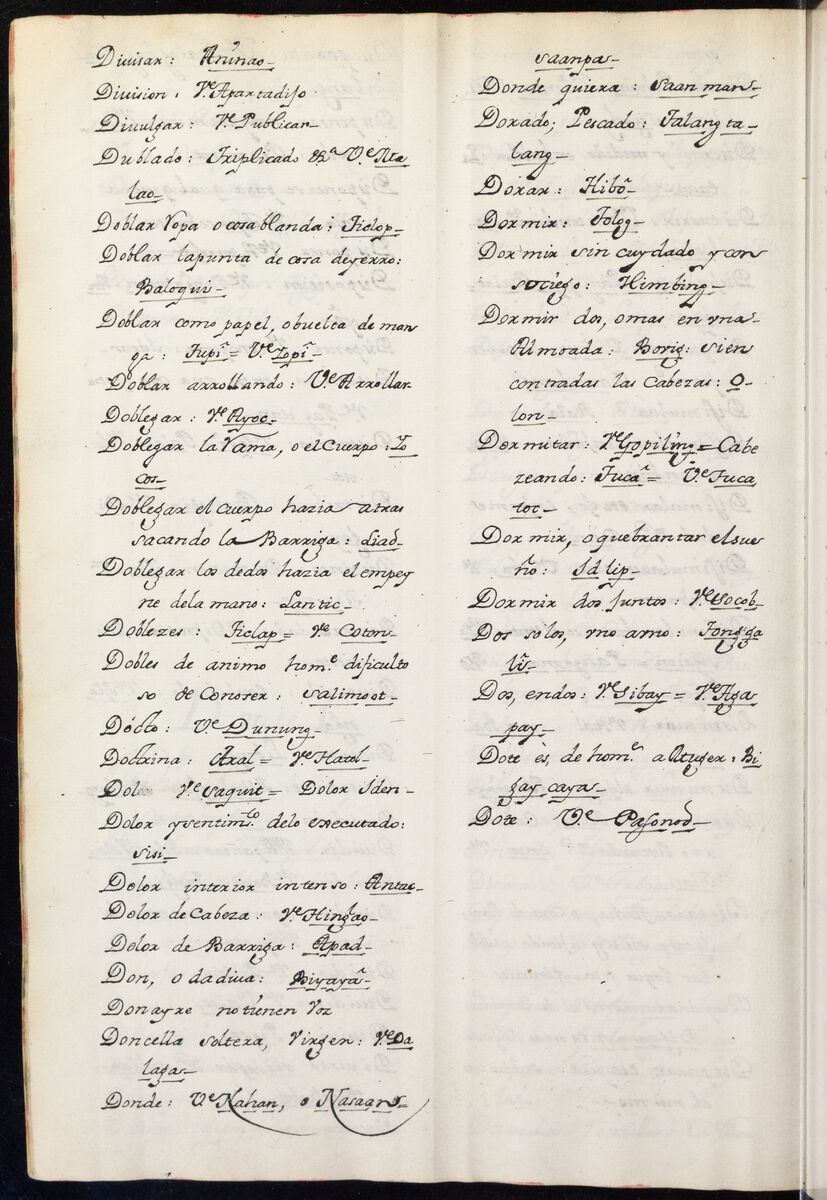 Diuisar: Aninao
Diuision. Vᵉ Apartadiso
Diuulgar: Vᵉ Publicar
Dublado: Triplicado &ᵃ Vᵉ Ata
lao
Doblar Ropa o cosa blanda: Ticlop
Doblar lapunta de cosa deyerro:
Baloqui
Doblar como papel, obuelta de man
ga: Tupi = Vᵉ Lopi
Doblar arrollando: Vᵉ Arrollar
Doblegar: Vᵉ Ayoc
Doblegar la Rama, o el Cuerpo: Lo
cos
Doblegar el cuerpo hazia atras
sacando la Barriga: Liad
Doblegar los dedos hazia el empey
ne dela mano: Lantic
Doblezes: Ticlap = Vᵉ Coton
Dobles de animo homᵉ dificulto
so de Conoser: Salimoot
Docto: Vᵉ Dunung
Doctrina: Aral = Vᵉ Hatol
Dolor Vᵉ Saquit = Dolor Iden
Dolor ysentimᵗᵒ delo executado:
sisi
Dolor interior intenso: Antac
Dolor de Cabeza: Vᵉ Hingao
Dolor de Barriga: Apad
Don, o dadiua: Biyaya
Donayre no tienen Voz
Doncella soltera, Virgen: Vᵉ Da
laga
Donde: Vᵉ Nahan, o Nasaan
saanpa
Donde quiera: saan man
Dorado; Pescado: Talang ta
lang
Dorar: Hibo
Dormir: Tolog
Dormir sin cuydado y con
sociego: Himbing
Dormir dos, omas en vna
Almoada: Borig: sien
contradas las Cabezas: O
lon
Dormitar: Vᵉ Gopiling = Cabe
zeando: Tuca = Vᵉ Tuca
toc
Dormir, o quebrantar el sue
ño: Idlip
Dormir dos Juntos: Vᵉ Socob
Dos solos, vno a vno: Tongga
li
Dos, endos: Vᵉ Sibay = Vᵉ Aga
pay
Dote ès, de homᵉ a Muger: Bi
gay caya
Dote: Vᵉ Pasonod